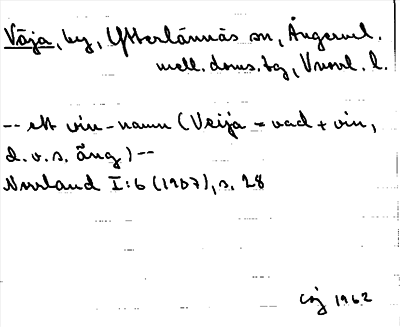 Väja, by, Ytterlännäs sn, Ångerml.
mell. doms.tg, Vnorrl. l.
-- ett vin-namn (Veija = vad + vin,
d.v.s. äng) --
Norrland I:6 (1907), s. 28
1962